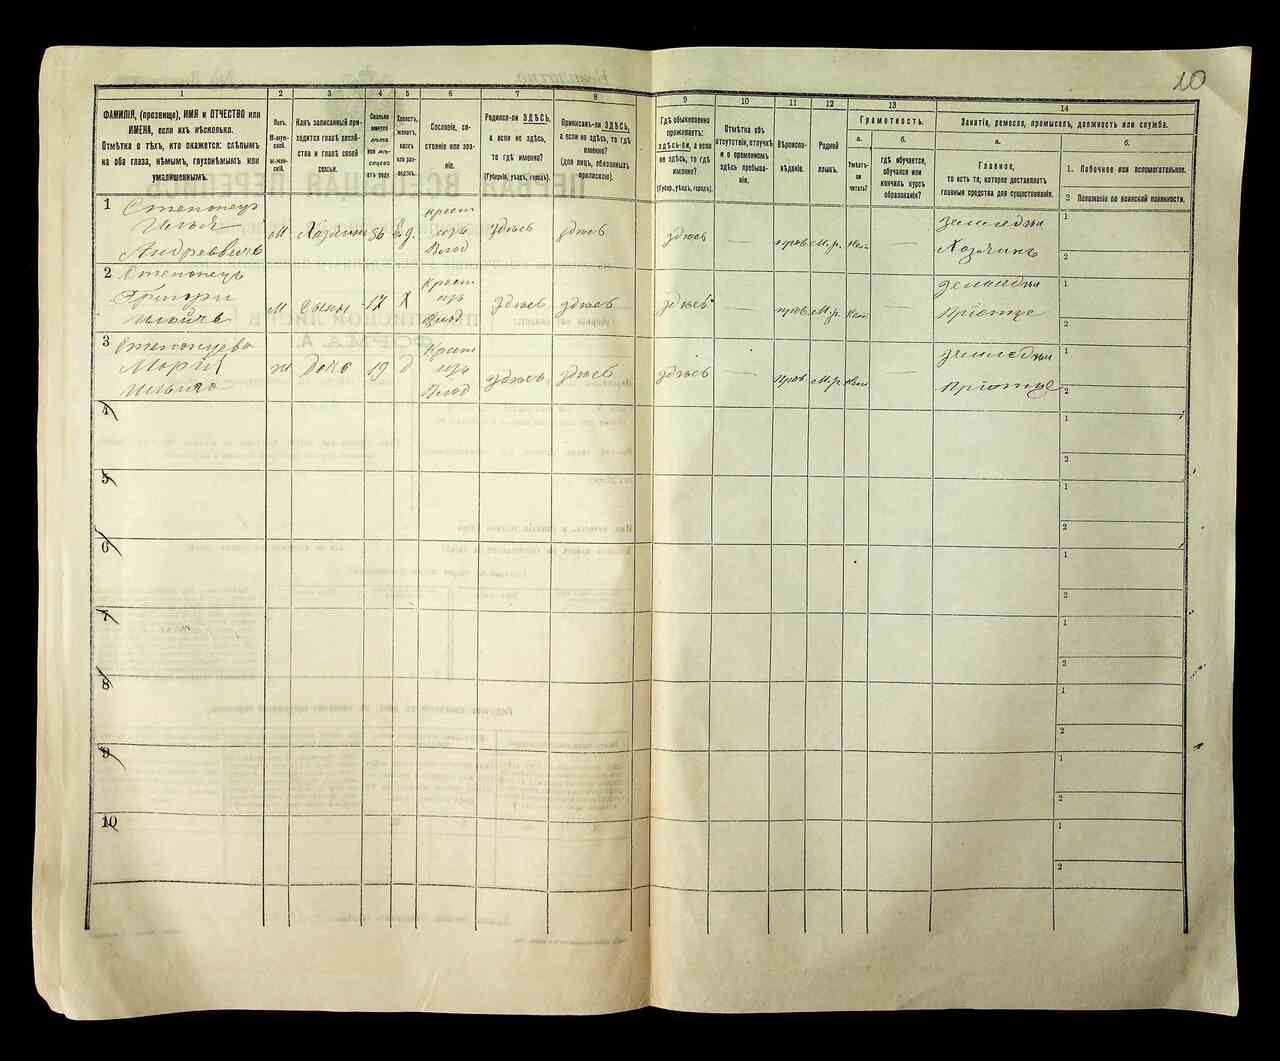 10
1 2 3 4 5 6 7 8 9 10 11 12 13 14
ФАМИЛІЯ, (прозвище), ИМЯ и ОТЧЕСТВО или
ИМЕНА, если ихъ нѣсколько.
Отмѣтка о тѣхъ, кто окажется: слѣпымъ
на оба глаза, нѣмымъ, глухонѣмымъ или
умалишеннымъ.
Полъ.
М-муж-
ской.
Ж-жен-
скій.
Какъ записанный при-
ходится главѣ хозяй-
ства и главѣ своей
семьи.
Сколько
минуло
лѣтъ
или мѣ-
сяцевъ
отъ роду.
Холостъ,
женатъ,
вдовъ
или раз-
веденъ.
Сословіе, со-
стояніе или зва-
ніе.
Родился-ли ЗДѢСЬ,
а если не здѣсь,
то гдѣ именно?
(Губернія, уѣздъ, городъ).
Приписанъ-ли ЗДѢСЬ,
а если не здѣсь, то гдѣ
именно?
(для лицъ, обязанныхъ
припискою).
Гдѣ обыкновенно
проживаетъ:
здѣсь-ли, а если
не здѣсь, то гдѣ
именно?
(Губер., уѣздъ, городъ).
Отмѣтка объ
отсутствіи, отлучкѣ
и о временномъ
здѣсь пребыва-
ніи.
Вѣроиспо-
вѣданіе.
Родной
языкъ.
Грамотность.
а.
Умѣетъ-
ли
читать?
б.
гдѣ обучается,
обучался или
кончилъ курсъ
образованія?
Занятія, ремесло, промыселъ, должность или служба.
а.
Главное,
то есть то, которое доставляетъ
главныя средства для существованія.
б.
1. Побочное или вспомогательное.
2 Положеніе по воинской повинности.
1 Степонецъ
Илья
Андреевичъ
М Хозяинъ 56 в.д. крест
изъ
Влад здѣсь здѣсь здѣсь — прав М.р. —
Земледѣл
Хозяинъ
1
2
2 Степонецъ
Григори
Ильичъ
М Сынъ 17 Х Крест
изъ
Влад здѣсь здѣсь здѣсь — прав М.р. —
Земледѣл
1
2
3 Степонцева
Марія
Ильина
ж Дочь 19 д Крест
изъ
Влад здѣсь здѣсь здѣсь — прав М.р. —
Земледѣл
1
2
4 1
2
5 1
2
6 1
2
7 1
2
8 1
2
9 1
2
10 1
2